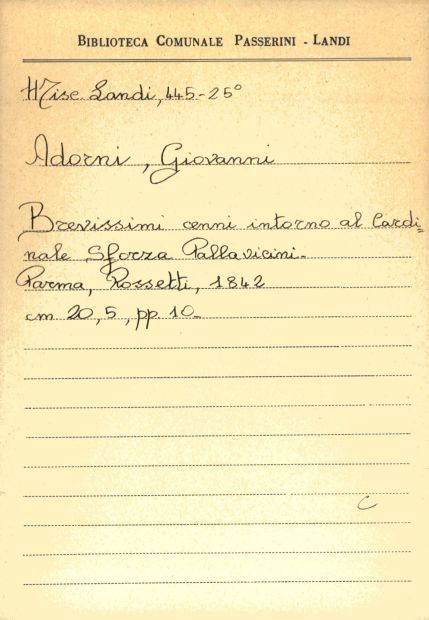 BIBLIOTECA COMUNALE PASSERINI - LANDI
Misc. Landi, 445-25°
Adorni, Giovanni
Brevissimi cenni intorno al Cardi=
nale Sforza Pallavicini.
Parma, Rossetti, 1842
cm 20,5, pp. 10.
C